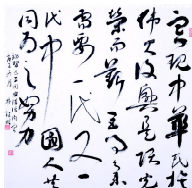 实现中华民族
伟大复兴是一项光
荣而艰巨的事业
需要一代又一
代中国人共
同为之努力